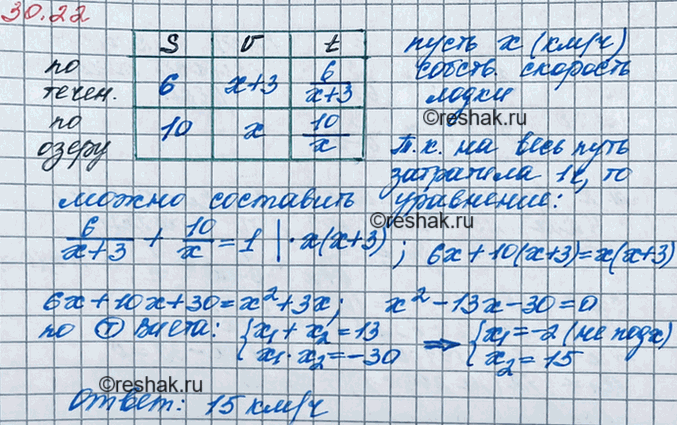 30.22
S v t
по течен. 6 x+3 6/(x+3)
по озеру 10 x 10/x
пусть x (км/ч)
собств. скорость
лодки
Т.к. на весь путь
затратила 1ч, то
можно составить уравнение:
©reshak.ru
6/(x+3) + 10/x = 1 | · x(x+3) ; 6x+10(x+3)=x(x+3)
©reshak.ru
6x+10x+30=x²+3x; x²-13x-30=0
по Ⓣ Виета: { x₁+x₂=13 x₁·x₂=-30 ⇒ { x₁=-2 (не подх) x₂=15
©reshak.ru
Ответ: 15 км/ч